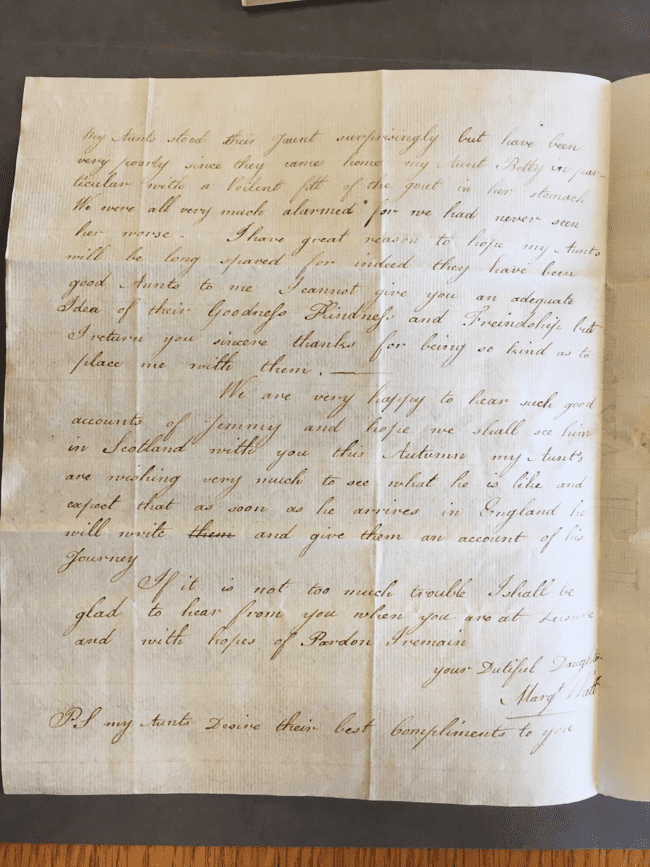 My Aunts stood their Jaunt surprisingly but have been
very poorly since they came home my Aunt Betty in par-
ticular with a Voilent fitt of the gout in her stomach
We were all very much alarmed for we had never seen
her worse. I have great reason to hope my Aunts
will be long spared for indeed they have been
good Aunts to me I cannot give you an adequate
Idea of their Goodness Kindness and Freindship but
I return you sincere thanks for being so kind as to
place me with them. —
We are very happy to hear such good
accounts of Jemmy and hope we shall see him
in Scotland with you this Autumn my Aunts
are wishing very much to see what he is like and
expect that as soon as he arrives in England he
will write them and give them an account of his
Journey
If it is not too much trouble I shall be
glad to hear from you when you are at Leisure
and with hopes of Pardon I remain
your Dutiful Daughter
Margt Watt
PS my Aunts Desire their best Compliments to you